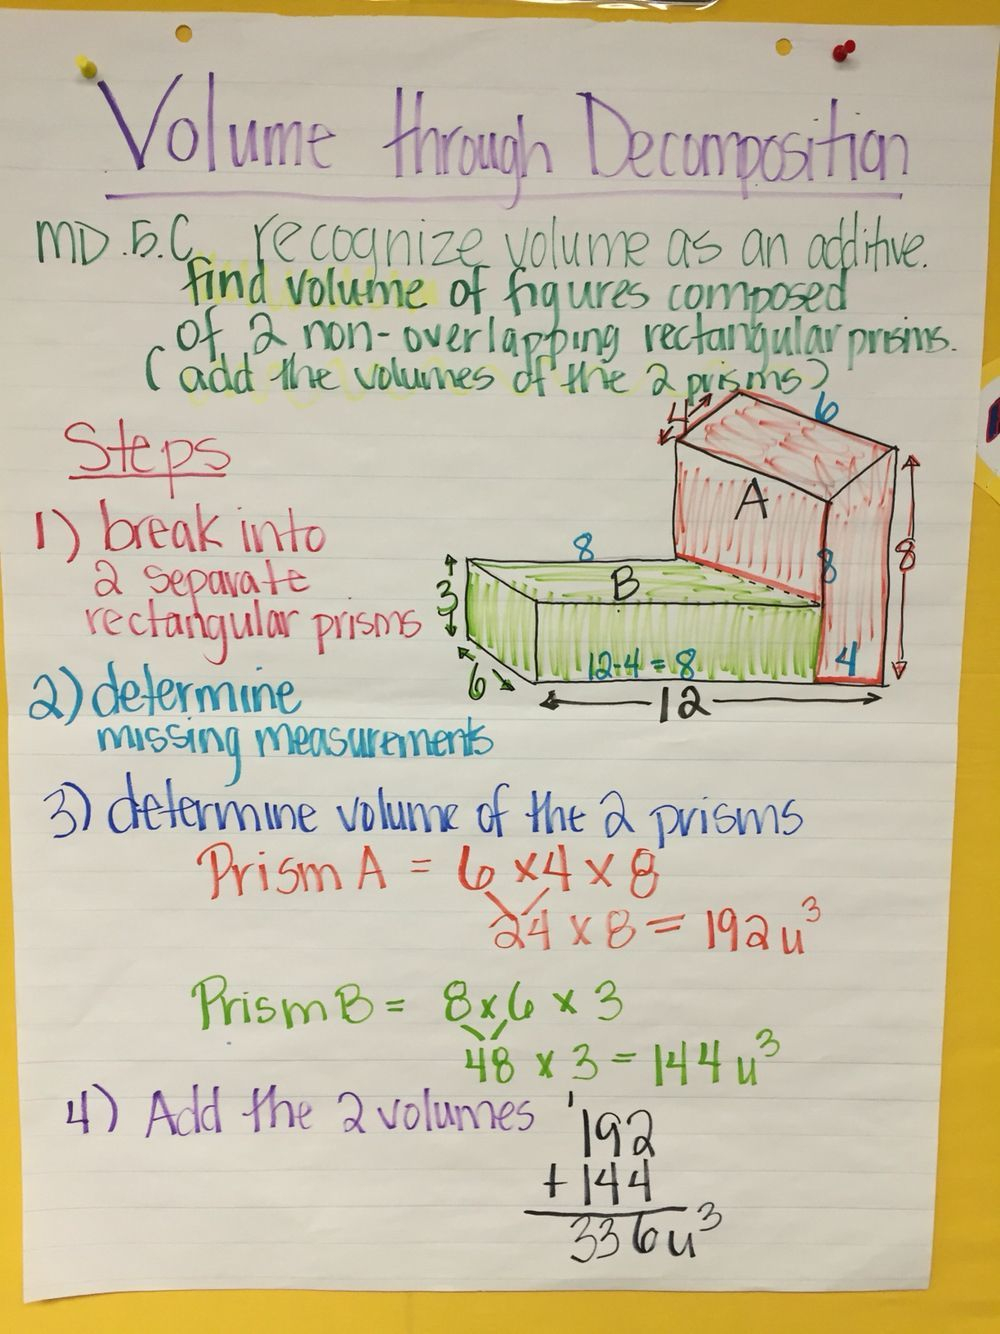 Volume through Decomposition
MD.5.C recognize volume as an additive.
find volume of figures composed
of 2 non-overlapping rectangular prisms.
(add the volumes of the 2 prisms)
Steps
1) break into
2 separate
rectangular prisms
2) determine
missing measurements
4
6
A
8
8
8
B
3
6
12-4=8
4
12
3) determine volume of the 2 prisms
Prism A = 6 x 4 x 8
24 x 8 = 192u³
Prism B = 8 x 6 x 3
48 x 3 = 144u³
4) Add the 2 volumes
1
192
+ 144
336u³